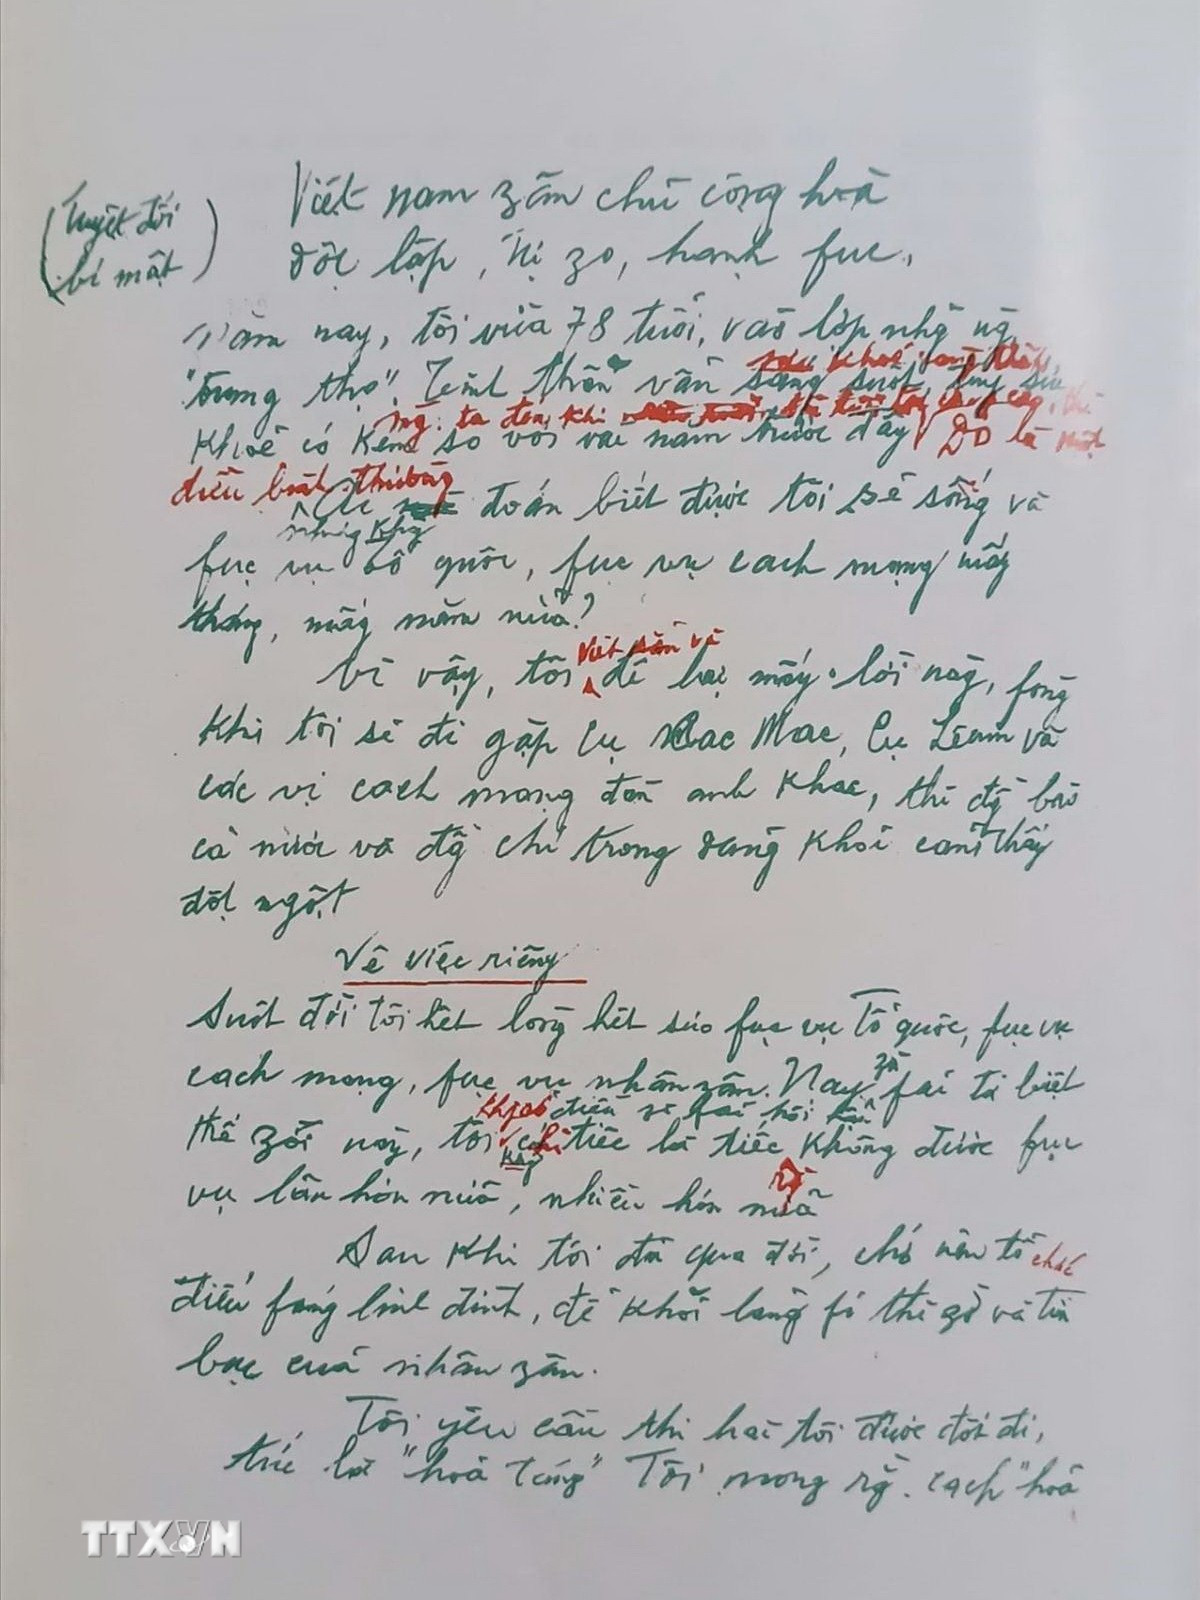 (Tuyệt đối
bí mật)
Việt nam zân chủ cộng hoà
độc lập, tự zo, hạnh fúc,
Năm nay, tôi vừa 78 tuổi, vào lớp nhữ ng
"trung thọ". Tinh thần vẫn sáng suốt, tuy sức
khoẻ có kém so với vài năm trước đây
ng: ta đến khi
Đó là một
điều bình thường
Ai đoán biết được tôi sẽ sống và
nhưng
fục vụ tổ quốc, fục vụ cách mạng mấy
tháng, mấy năm nữa?
Viết sẵn và
Vì vậy, tôi để lại mấy lời này, fòng
khi tôi sẽ đi gặp cụ Các Mác, Cụ Lênin và
các vị cách mạng đàn anh khác, thì đồ bào
cả nước và đồ chí trong đảng khỏi cảm thấy
đột ngột
Về việc riêng
Suốt đời tôi hết lòng hết sức fục vụ Tổ quốc, fục vụ
cách mạng, fục vụ nhân zân. Nay zù fải từ biệt
khgcó điều gì fải hối hận
thế zới này, tôi chỉ tiếc là tiếc không được fục
vụ lâu hơn nữa, nhiều hơn nữa
Sau khi tôi đã qua đời, chớ nên tổ chức
điếu fúng linh đình, để khỏi lãng fí thì zờ và tiền
bạc của nhân zân.
Tôi yêu cầu thi hài tôi được đốt đi,
tức là "hoả táng" Tôi mong rằ. cách "hoả
TTXVN